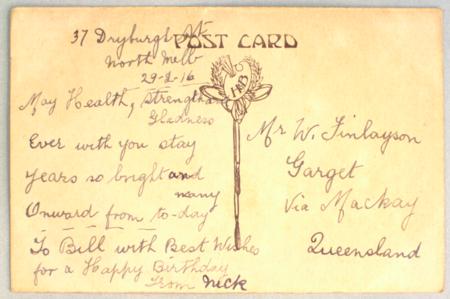 37 Dryburgh St
POST CARD
North Melb
29-2-16
May Health, Strength
Gladness
Ever with you stay
Years so bright and
many
Onward from to-day
To Bill with Best Wishes
for a Happy Birthday
From Nick
HB
Mr W. Finlayson
Garget
Via Mackay
Queensland